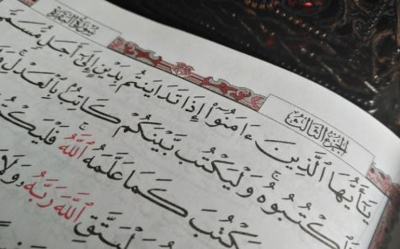 سورة البقرة
الجزء الثالث
يَٰٓأَيُّهَا ٱلَّذِينَ ءَامَنُوٓا۟ إِذَا تَدَايَنتُم بِدَيْنٍ إِلَىٰٓ أَجَلٍ مُّسَمًّى
فَٱكْتُبُوهُ وَلْيَكْتُب بَّيْنَكُمْ كَاتِبٌۢ بِٱلْعَدْلِ
يَكْتُبَ كَمَا عَلَّمَهُ ٱللَّهُ فَلْيَكْتُبْ
وَلْيَتَّقِ ٱللَّهَ رَبَّهُۥ وَلَا